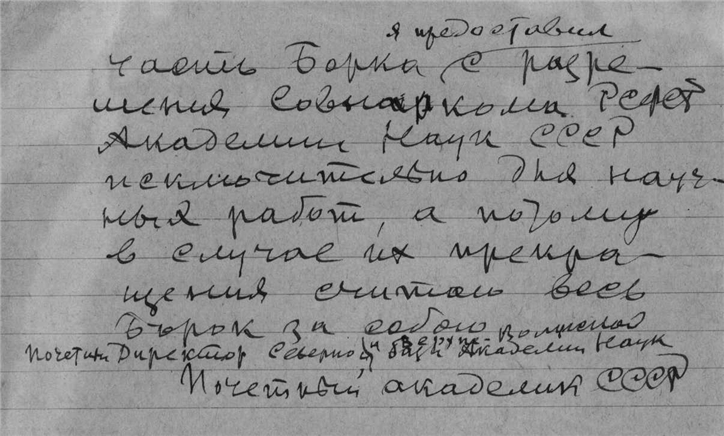 я предоставил
часть Борка с разре-
шения Совнаркома РСФСР
Академии Наук СССР
исключительно для науч-
ных работ, а потому
в случае их прекра-
щения считаю весь
Борок за собою
и Верхне-Волжской
Почетный Директор Северной базы Академии Наук
Почетный академик СССР